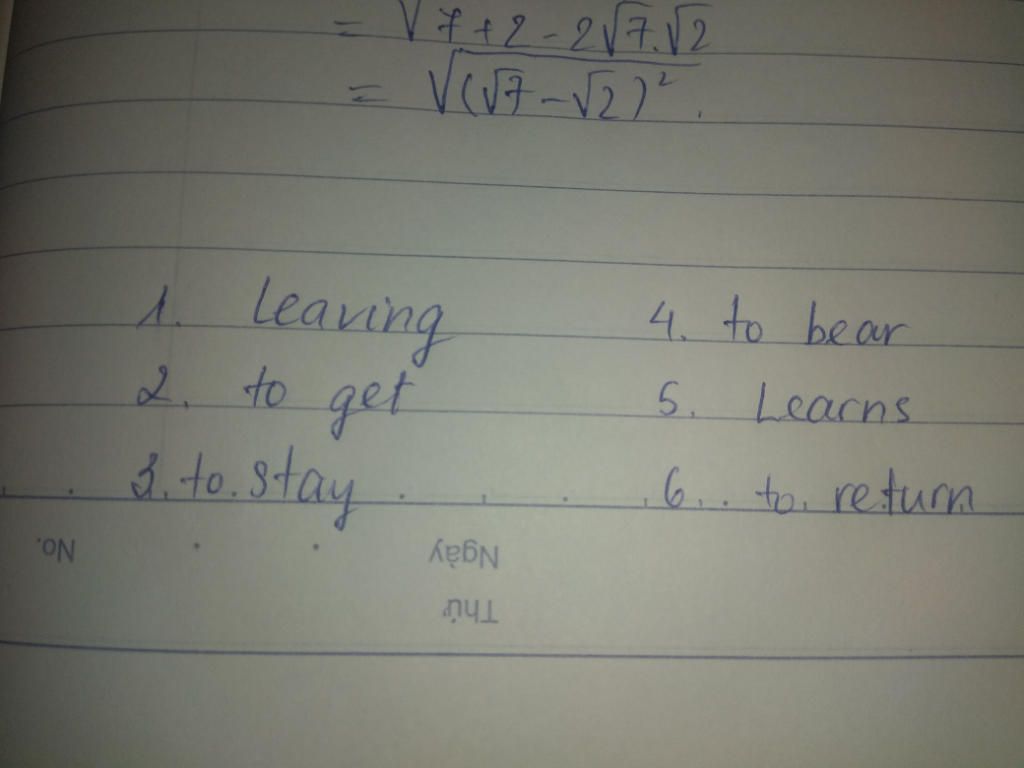 = √7+2-2√7.√2
= √(√7-√2)².
1. leaving 4. to bear
2. to get 5. Learns
3. to stay 6. to return
No. Ngày
Thứ